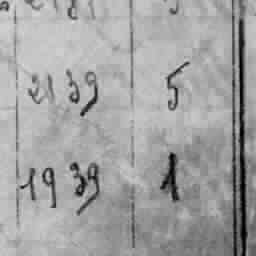 2139 5
1939 1